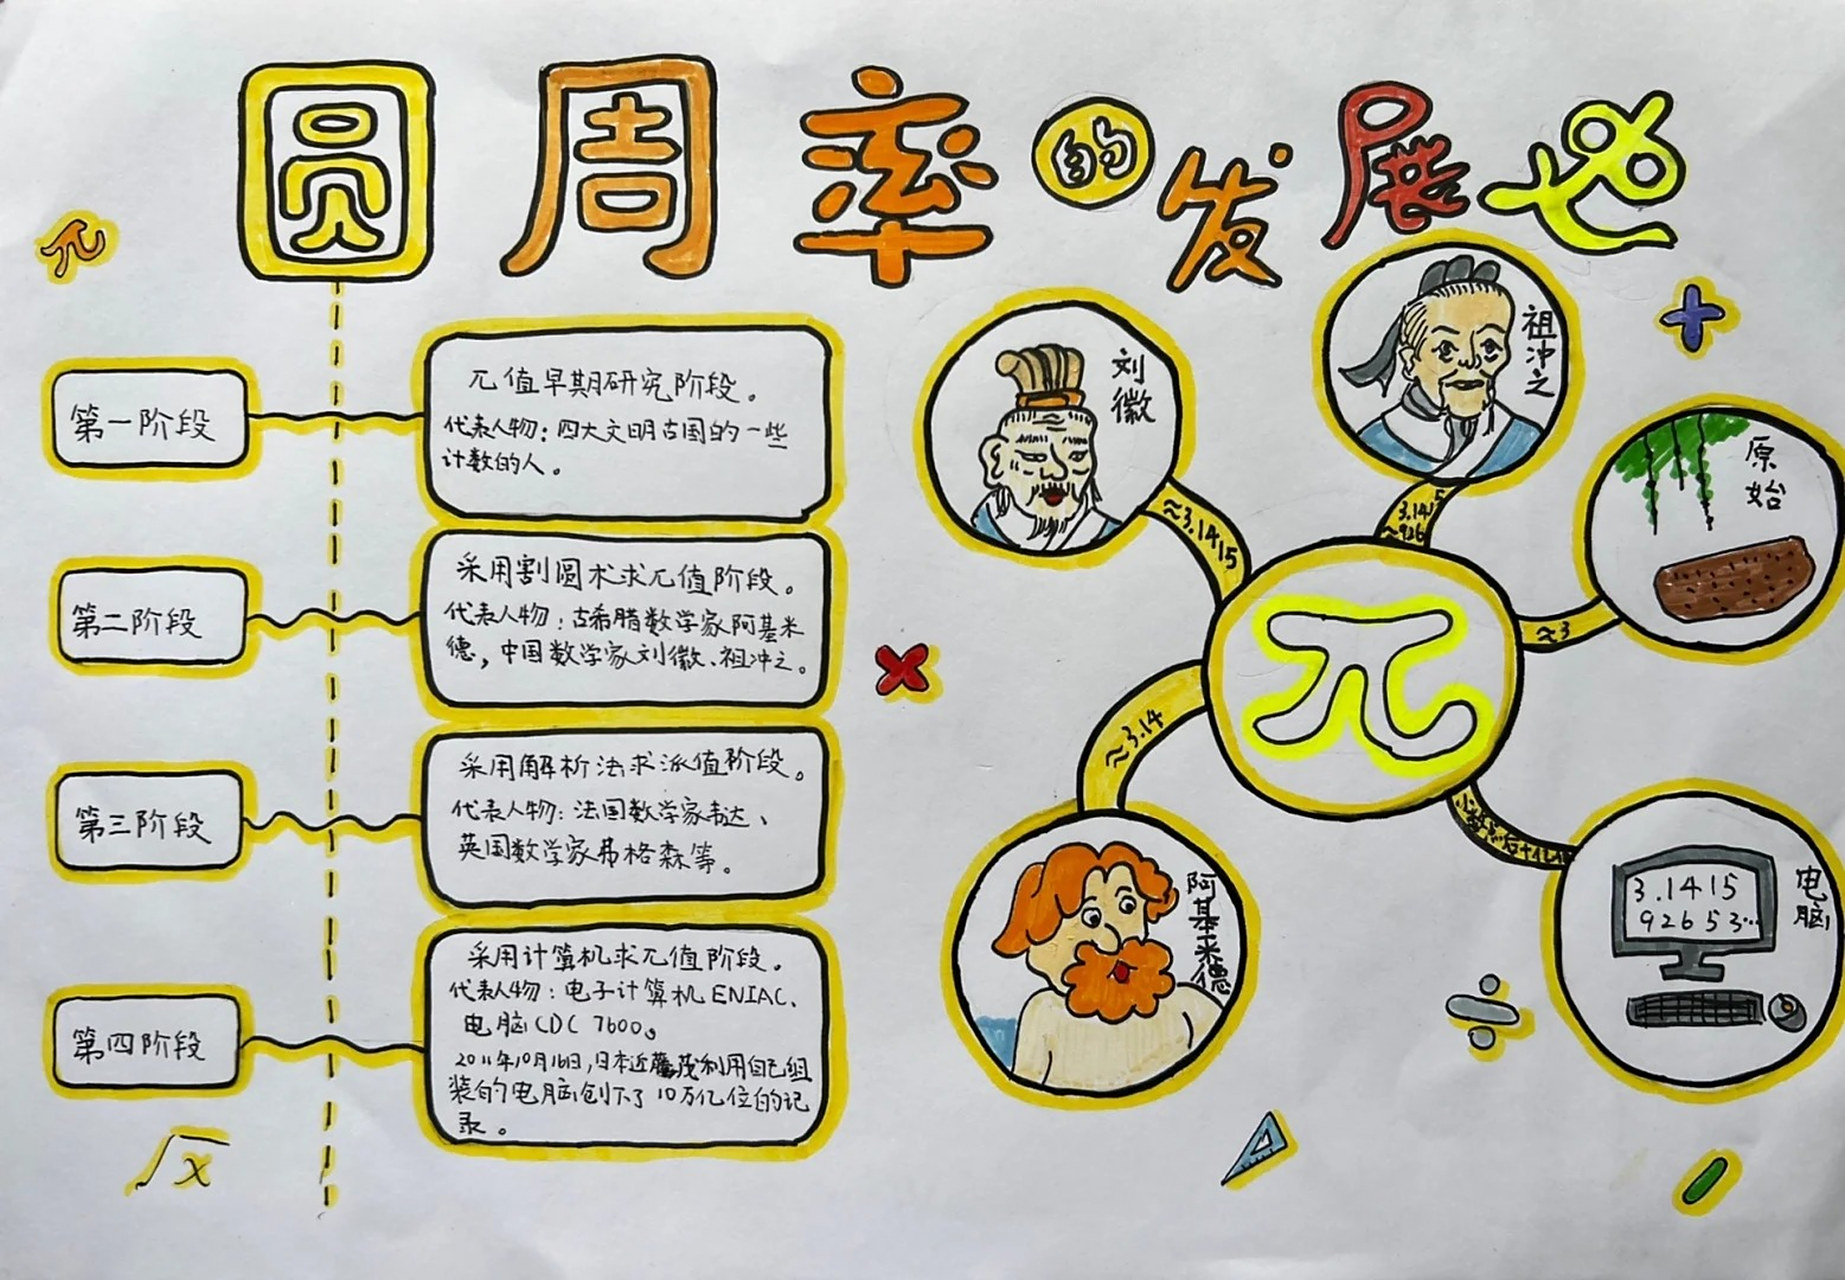 圆周率的发展史
π
第一阶段
π值早期研究阶段。
代表人物：四大文明古国的一些
计数的人。
第二阶段
采用割圆术求π值阶段。
代表人物：古希腊数学家阿基米
德，中国数学家刘徽、祖冲之。
第三阶段
采用解析法求派值阶段。
代表人物：法国数学家韦达、
英国数学家弗格森等。
第四阶段
采用计算机求π值阶段。
代表人物：电子计算机ENIAC、
电脑CDC 7600。
2011年10月16日，日本近藤茂利用自己组
装的电脑创下了10万亿位的记
录。
√x
刘徽
≈3.1415
祖冲之
3.1415
≈926
原始
≈3
π
≈3.14
阿基米德
电脑
3.1415
92653…